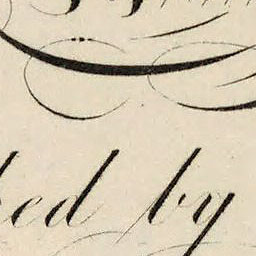 ed by